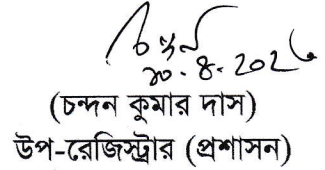 ২০.৪.২০২৬
(চন্দন কুমার দাস)
উপ-রেজিস্ট্রার (প্রশাসন)